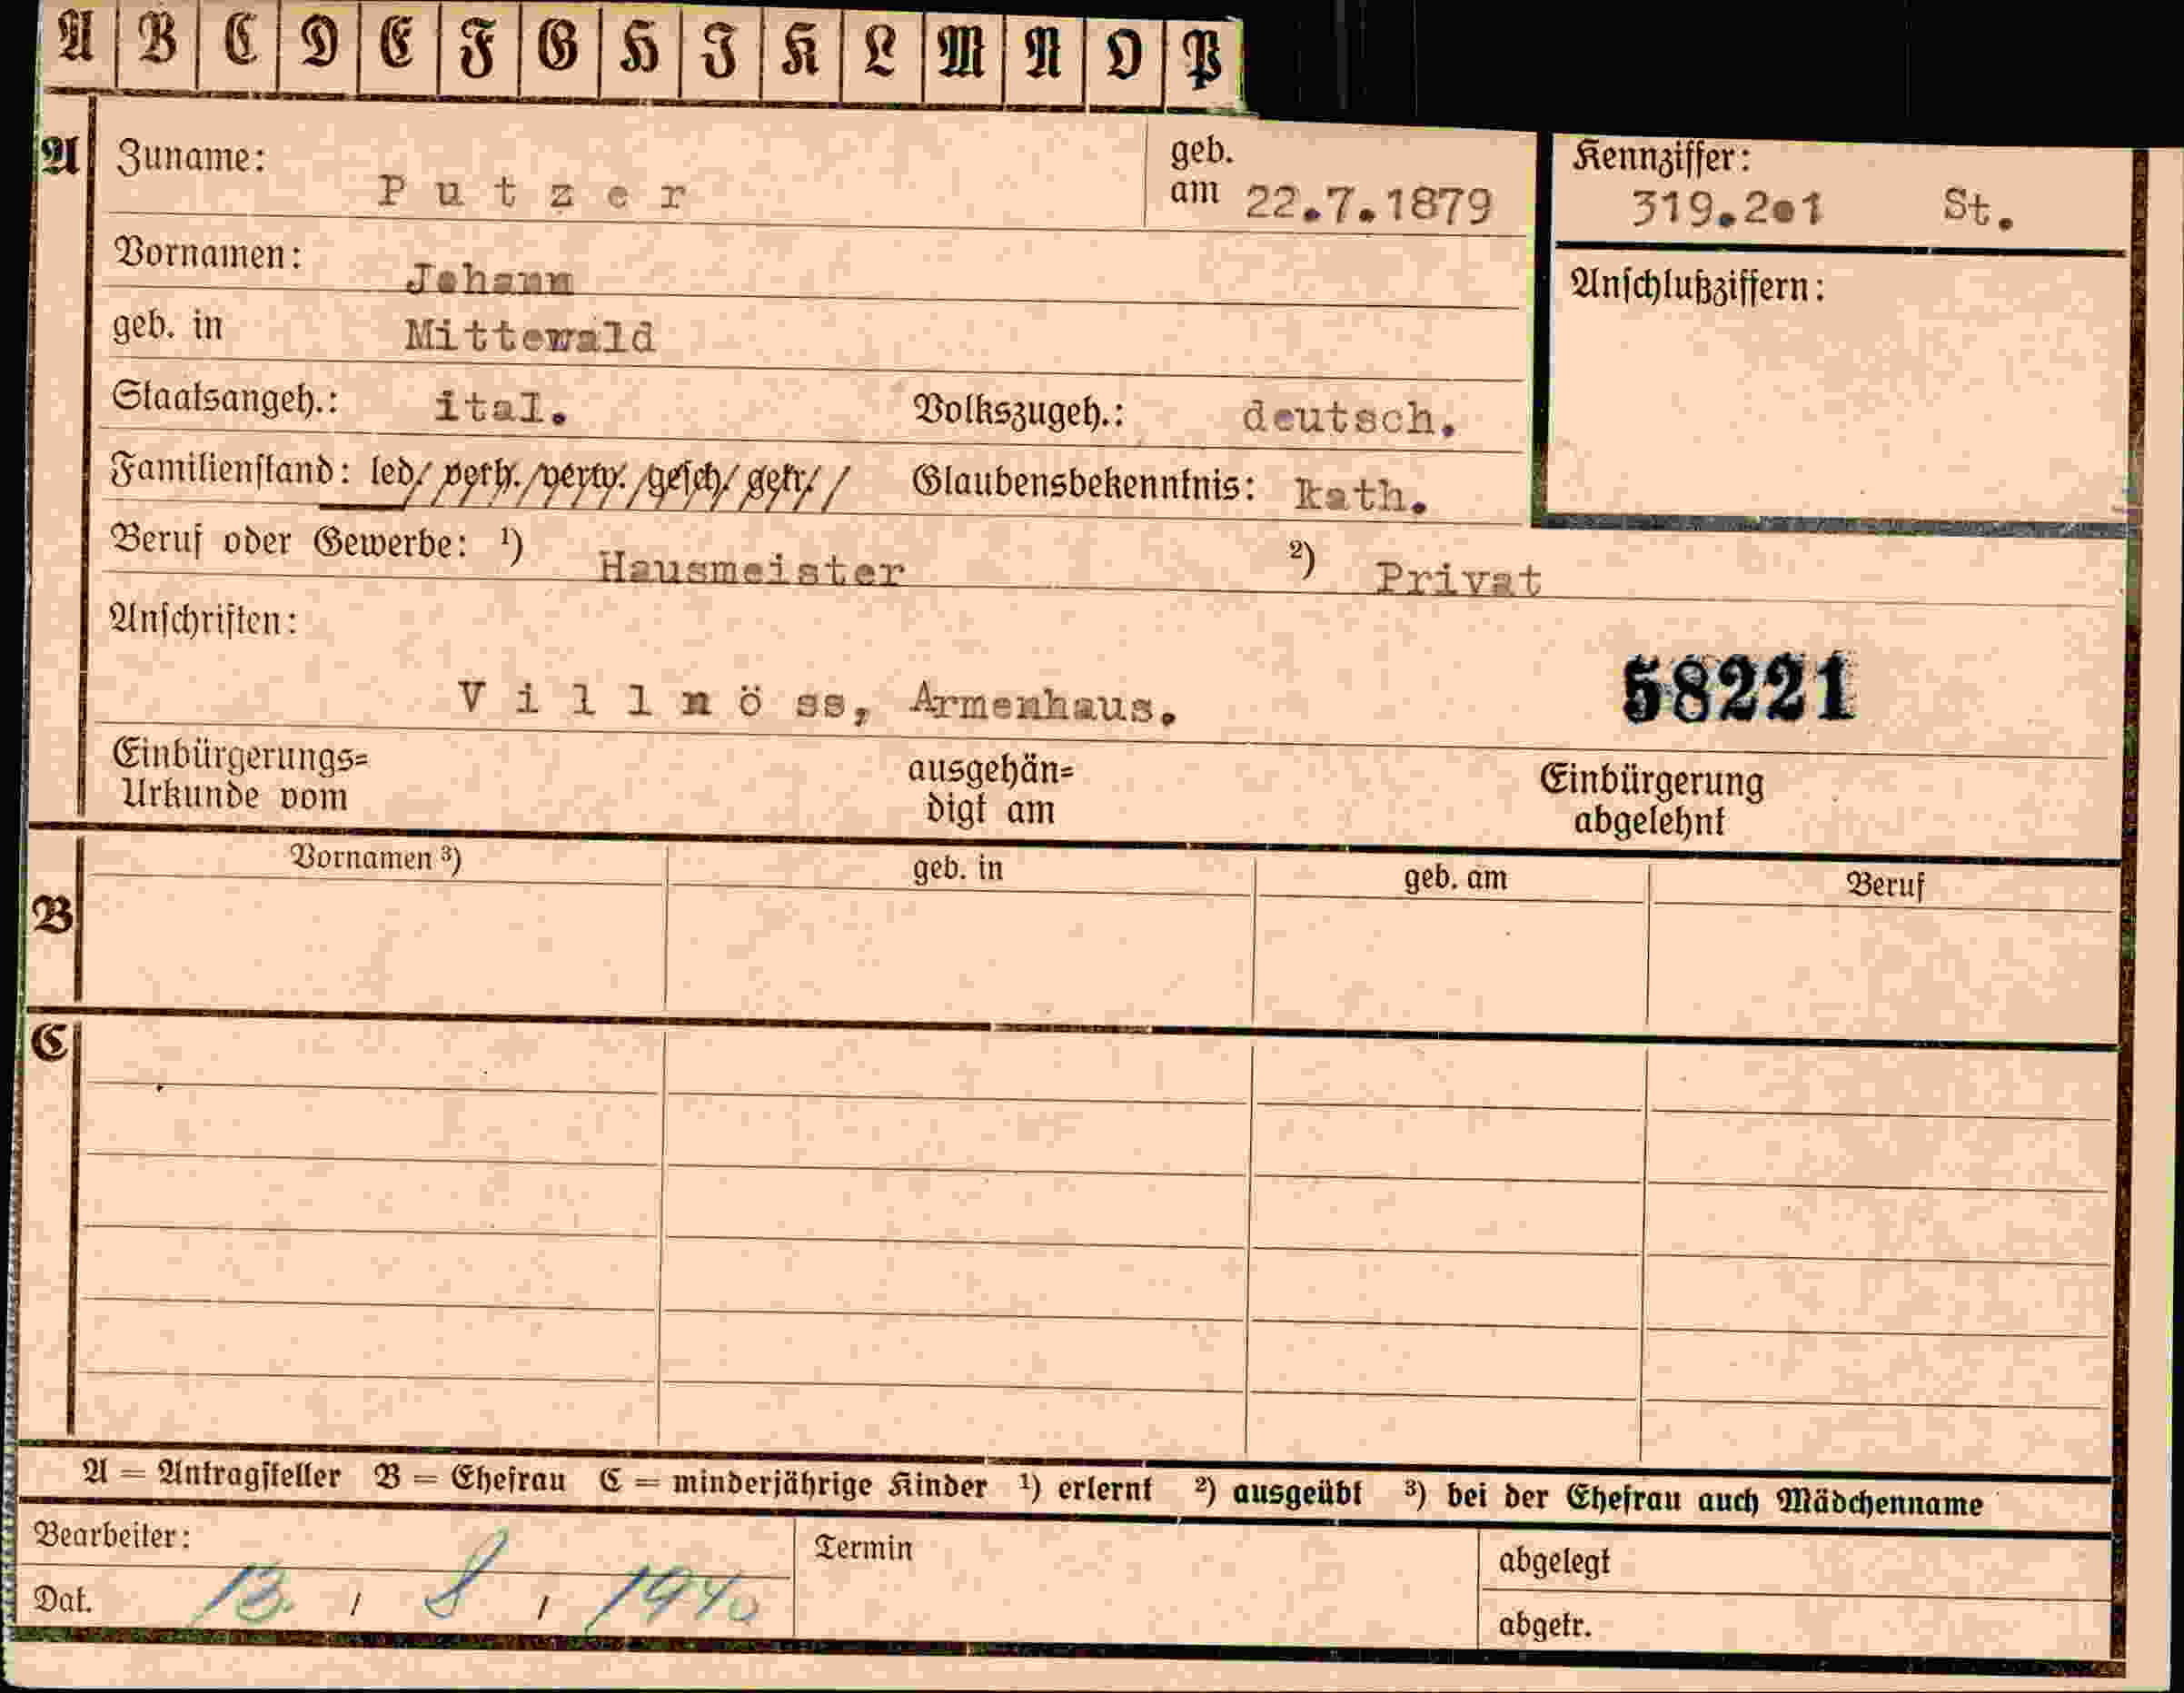 A B C D E F G H J K L M N O P
A Zuname: Putzer geb. am 22.7.1879 Kennziffer: 319.2.1 St.
Vornamen: Johann Anschlußziffern:
geb. in Mittewald
Staatsangeh.: ital. Volkszugeh.: deutsch.
Familienstand: led./ verh./verw./gesch./getr./ Glaubensbekenntnis: kath.
Beruf oder Gewerbe: ¹) Hausmeister ²) Privat
Anschriften:
Villnöss, Armenhaus. 58221
Einbürgerungs=
Urkunde vom
ausgehän=
digt am
Einbürgerung
abgelehnt
Vornamen ³) geb. in geb. am Beruf
B
C
A = Antragsteller B = Ehefrau C = minderjährige Kinder ¹) erlernt ²) ausgeübt ³) bei der Ehefrau auch Mädchenname
Bearbeiter: Termin abgelegt
Dat. 13. / 8 / 1940 abgetr.